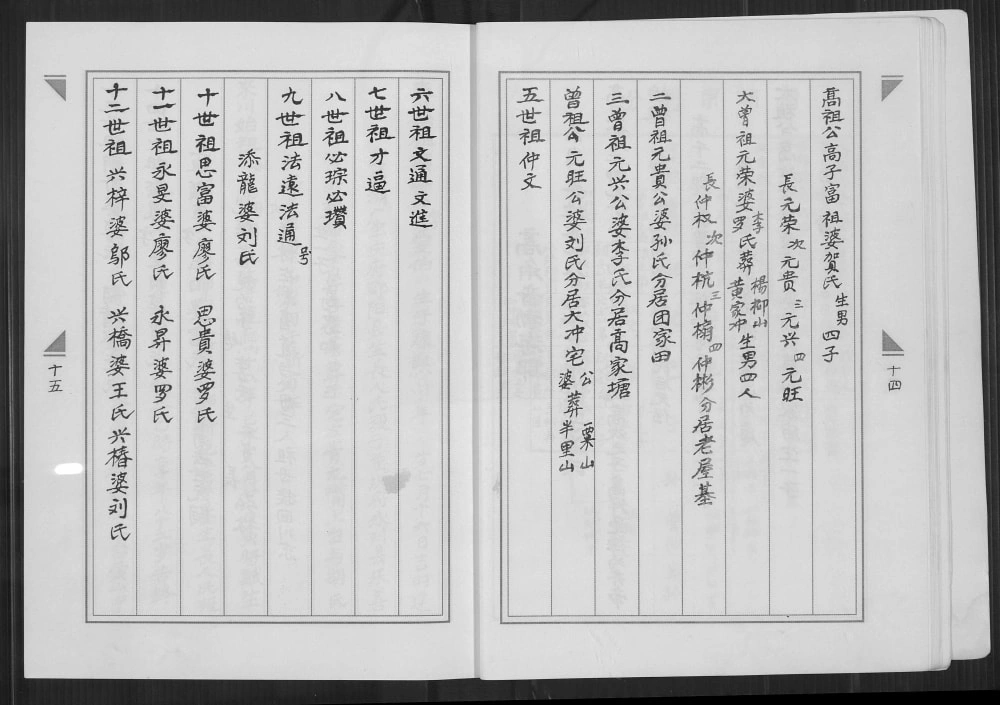 高祖公高子富祖婆贺氏生男四子
長元荣次元贵三元兴四元旺
大曾祖元荣婆李罗氏葬楊柳山黄家冲生男四人
長仲权次仲杭三仲榒四仲彬分居老屋基
二曾祖元貴公婆孙氏分居团家田
三曾祖元兴公婆李氏分居高家塘
曾祖公元旺公婆刘氏分居大冲宅公葬粟山婆葬半里山
五世祖仲文
十四
六世祖文通文進
七世祖才逼
八世祖必琮必瓚
九世祖法遠法通号
添龍婆刘氏
十世祖思富婆廖氏 思貴婆罗氏
十一世祖永旻婆廖氏 永昇婆罗氏
十二世祖兴梓婆邬氏 兴橋婆王氏兴椿婆刘氏
十五